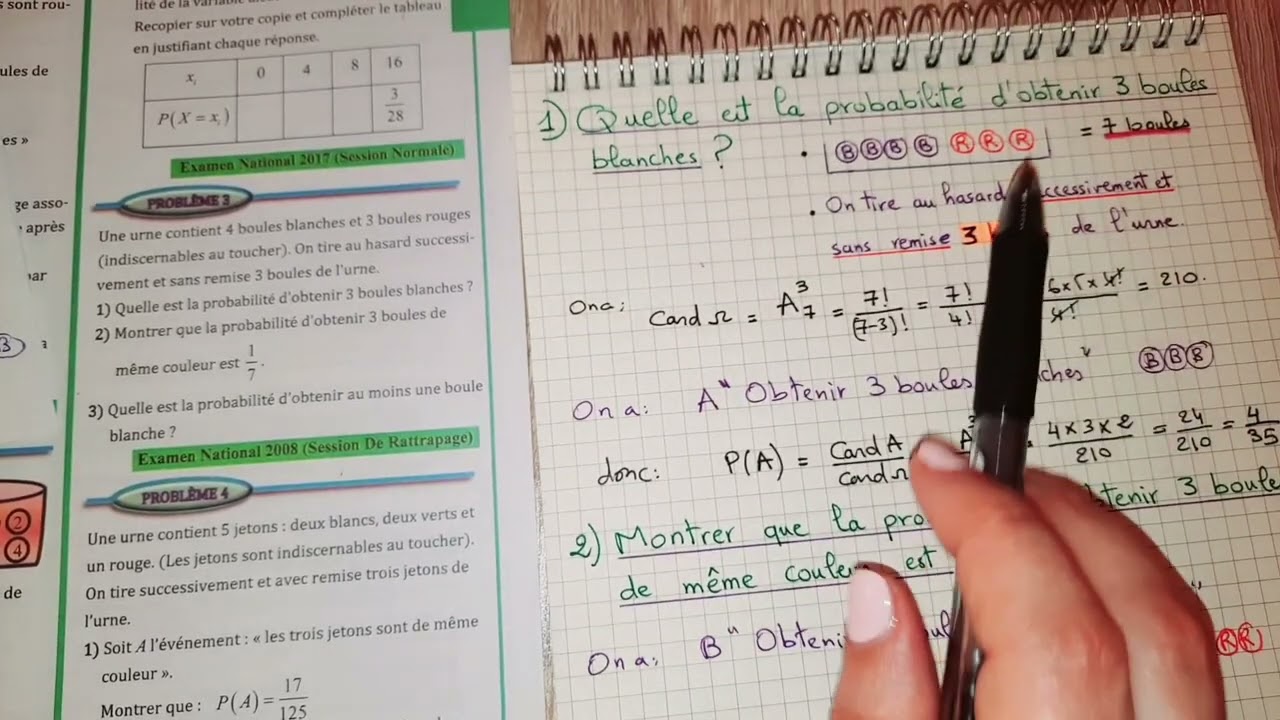 s sont rou-
ules de
es »
ge asso-
après
ar
3
2
4
de
Recopier sur votre copie et compléter le tableau
en justifiant chaque réponse.
xᵢ 0 4 8 16
P(X = xᵢ) 3/28
Examen National 2017 (Session Normale)
PROBLÈME 3
Une urne contient 4 boules blanches et 3 boules rouges
(indiscernables au toucher). On tire au hasard successi-
vement et sans remise 3 boules de l'urne.
1) Quelle est la probabilité d'obtenir 3 boules blanches ?
2) Montrer que la probabilité d'obtenir 3 boules de
même couleur est 1/7.
3) Quelle est la probabilité d'obtenir au moins une boule
blanche ?
Examen National 2008 (Session De Rattrapage)
PROBLÈME 4
Une urne contient 5 jetons : deux blancs, deux verts et
un rouge. (Les jetons sont indiscernables au toucher).
On tire successivement et avec remise trois jetons de
l'urne.
1) Soit A l'événement : « les trois jetons sont de même
couleur ».
Montrer que : P(A) = 17/125
1) Quelle est la probabilité d'obtenir 3 boules
blanches ? • B B B B R R R = 7 boules
• On tire au hasard successivement et
sans remise 3 de l'urne.
On a: Card Ω = A³₇ = 7!/(7-3)! = 7!/4! 6×5×4!/4! = 210.
On a: A" Obtenir 3 boules B B B
donc: P(A) = Card A/Card Ω 4×3×2/210 = 24/210 = 4/35
2) Montrer que la obtenir 3 boule
de même couleur est
On a: B" Obtenir R R